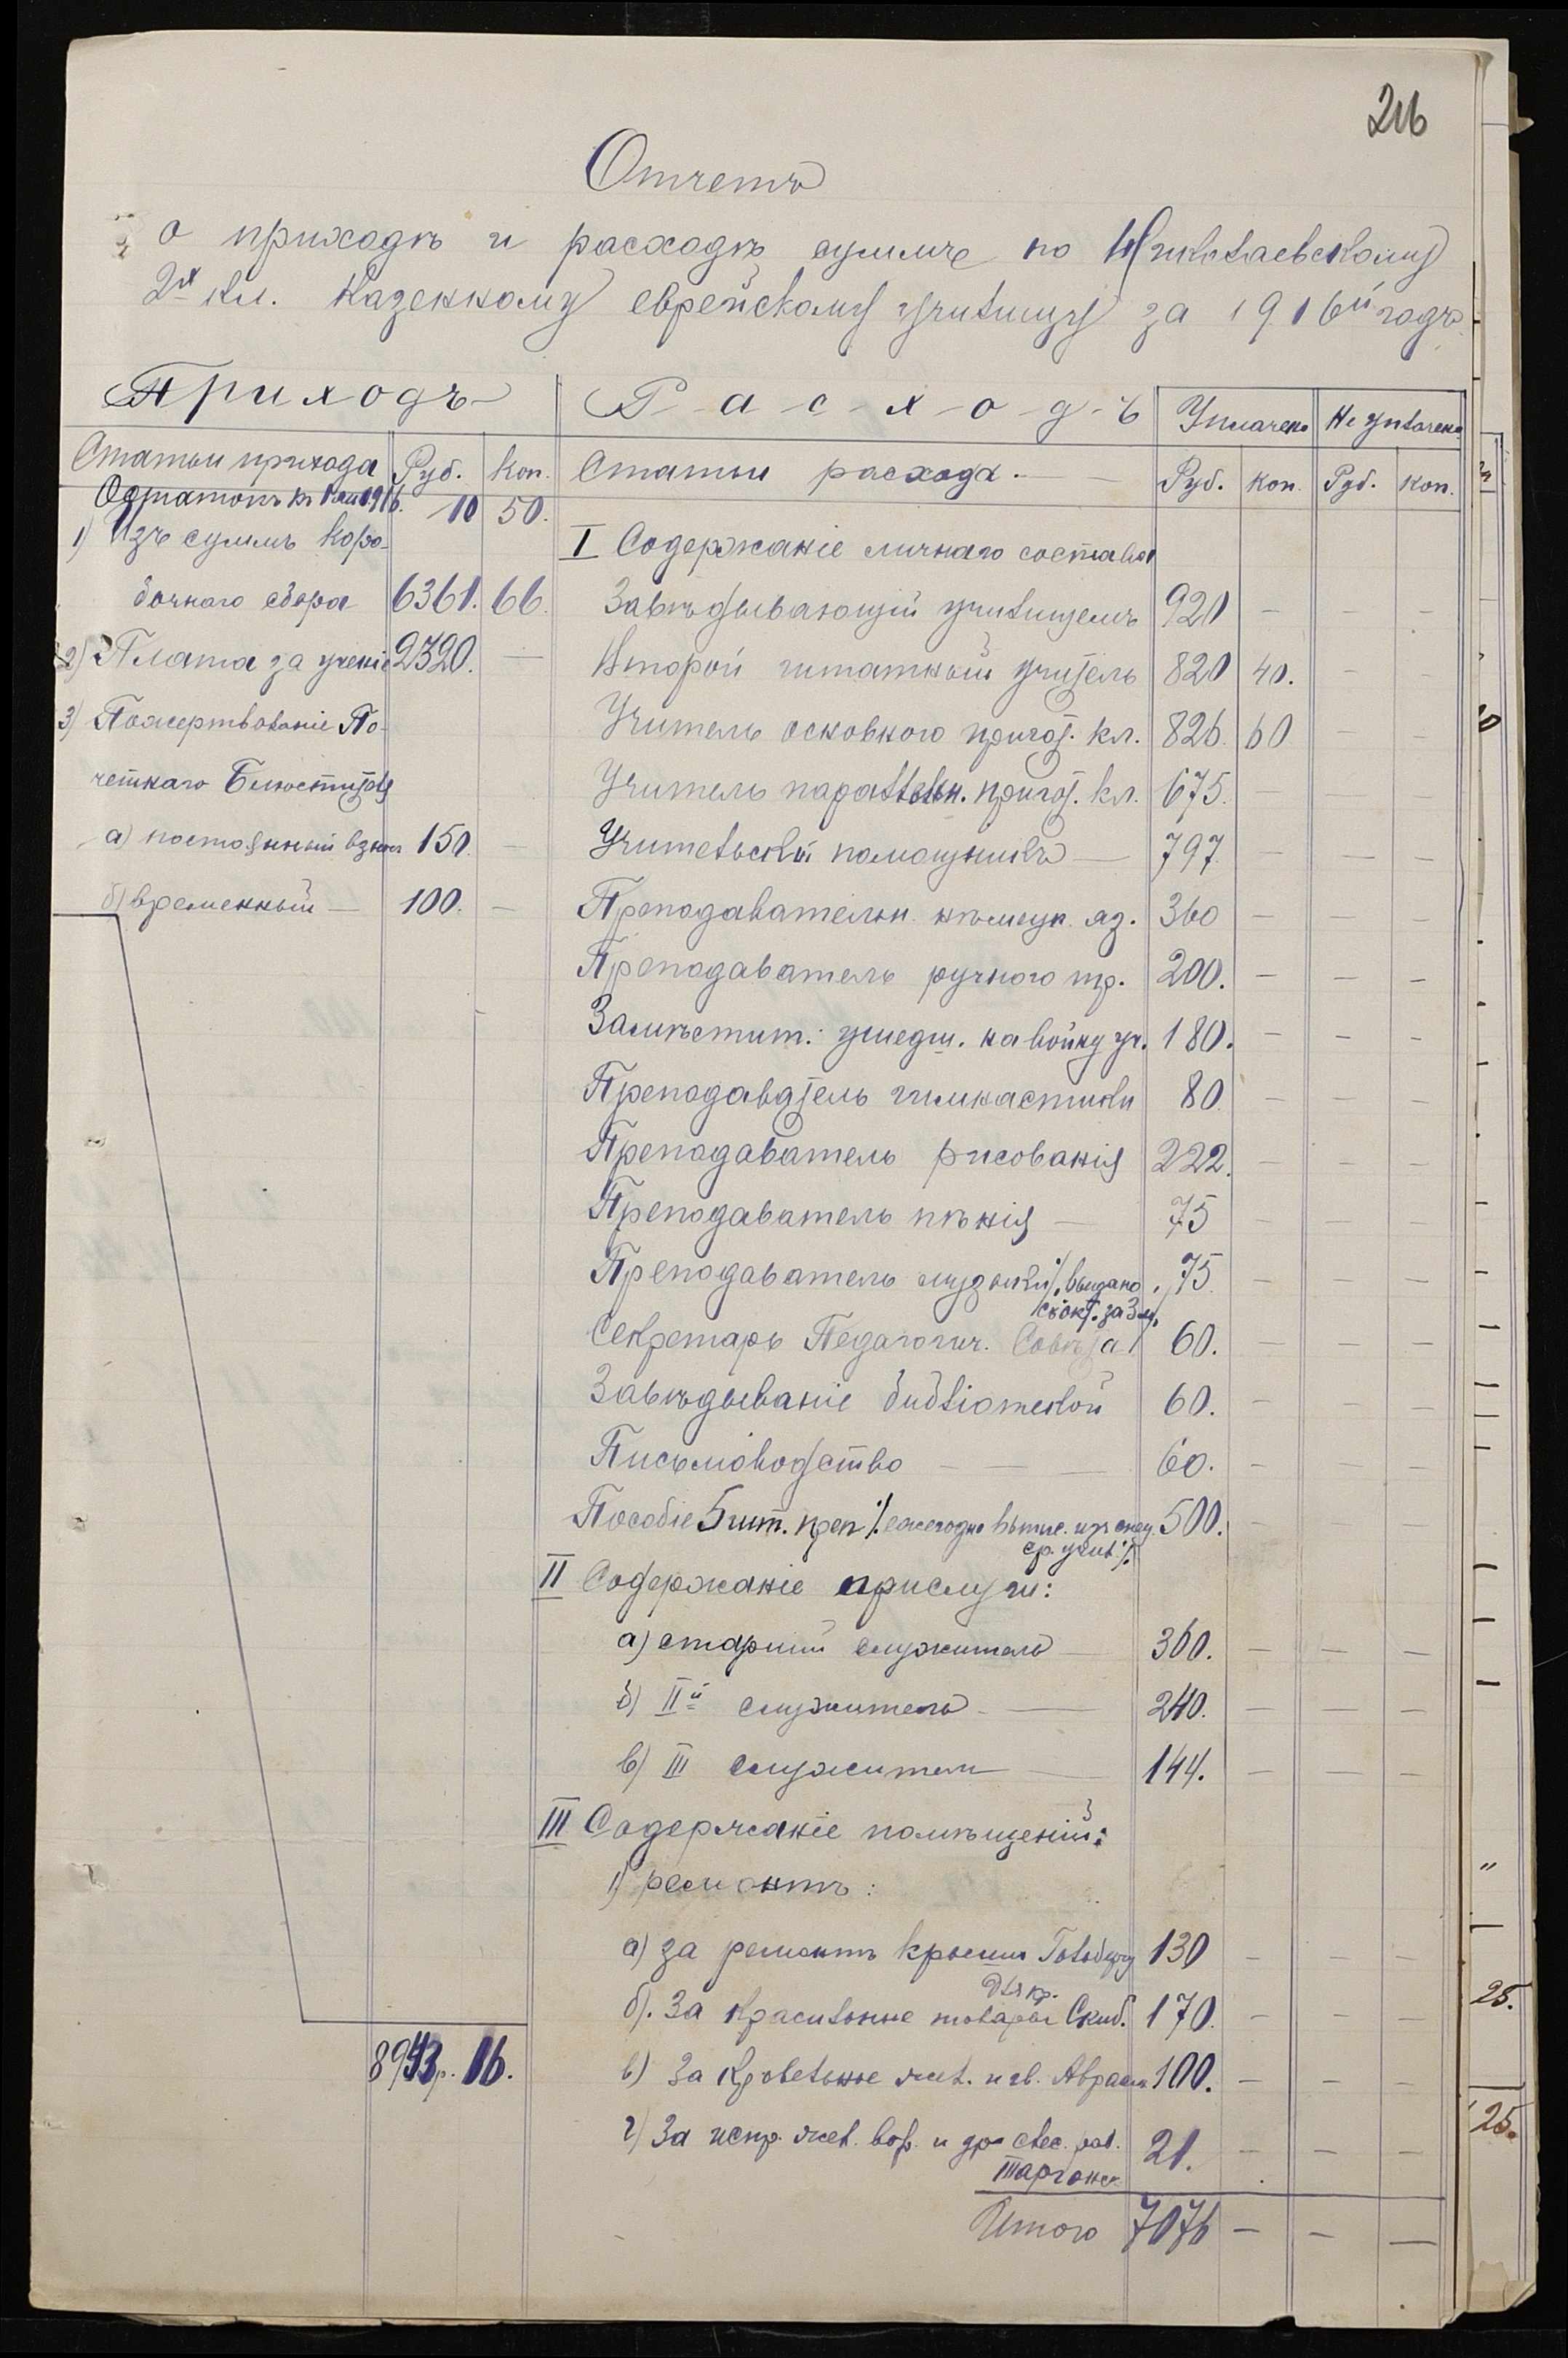 216
Отчетъ
о приходѣ и расходѣ суммъ по Николаевскому
2х кл. Казенному еврейскому училищу за 1916й годъ
Приходъ
Статьи прихода Руб. Коп.
Остатокъ къ 1 1916. 10 50.
1) Изъ суммъ коро-
бочнаго сбора 6361. 66.
2) Плата за ученіе 2320. —
3) Пожертвованіе По-
четнаго Блюстителя
а) постоянный взносъ 150. —
б) временный — 100. —
8943р. 16.
Расходъ Уплачено Не уплачено
Статьи расхода. — Руб. Коп. Руб. Коп.
I Содержаніе личнаго состава
Завѣдывающій училищемъ 920 — — —
Второй штатный учитель 820 40. — —
Учитель основного пригот. кл. 826. 60 — —
Учитель параллельн. пригот. кл. 675. — — —
Учительскій помощникъ — 797. — — —
Преподавательн. нѣмецк. яз. 360 — — —
Преподаватель ручного тр. 200. — — —
Замѣстит. ушедш. на войну уч. 180. — — —
Преподаватель гимнастики 80. — — —
Преподаватель рисованія 222. — — —
Преподаватель пѣнія — 75 — — —
Преподаватель музыки ·/. выдано 75. — — —
съ окт. за 3 м.
Секретарь Педагогич. Совѣта 60. — — —
Завѣдываніе библіотекой 60. — — —
Письмоводство — — — 60. — — —
Пособіе 5 шт. преп ·/. ежегодно изъ спец. 500. — — —
ср. учил ·/.
II Содержаніе прислуги:
а) старшій служитель — 360. — — —
б) IIй служитель — 240. — — —
в) III служитель — 144. — — —
III Содержаніе помѣщеній:
1) ремонтъ:
а) за ремонтъ крыши 130 — — —
для кр.
б). За красильные товары Скиб. 170. — — —
в) За кровельное жел. и гв. 100. — — —
г) За испр. жел. вор. и др слес. раб. 21. — — —
Итого 7076 — — —
25.
25.